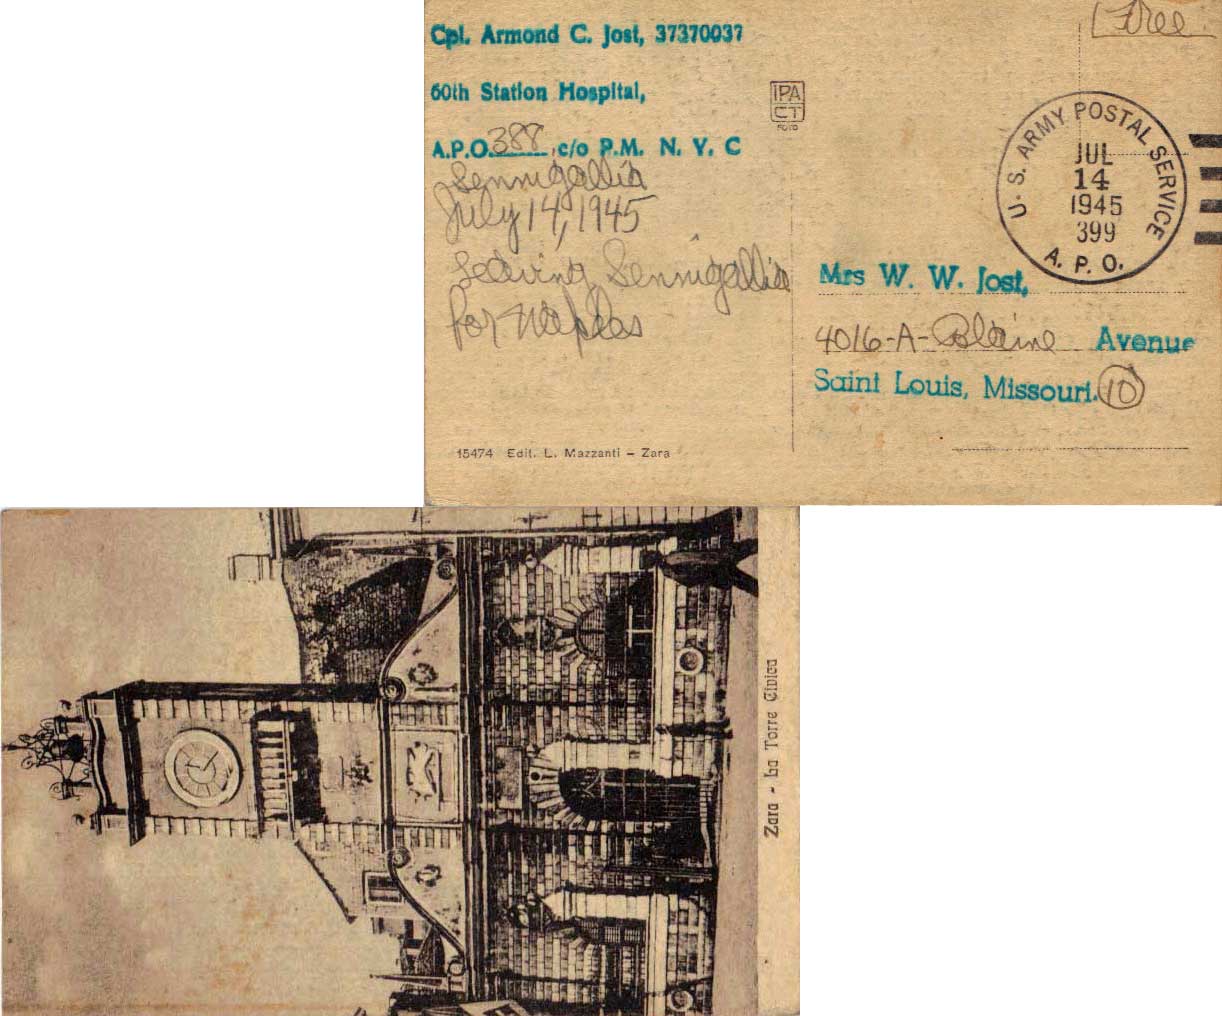 Cpl. Armond C. Jost, 37370037
60th Station Hospital,
A.P.O. 388 c/o P.M. N. Y. C
Sennigallia
July 14, 1945
Leaving Sennigallia
for Naples
15474 Edit. L. Mazzanti – Zara
IPA
CT
FOTO
Free
U. S. ARMY POSTAL SERVICE
JUL
14
1945
399
A. P. O.
Mrs W. W. Jost,
4016-A-Blaine Avenue
Saint Louis, Missouri. 10
Zara - La Torre Civica